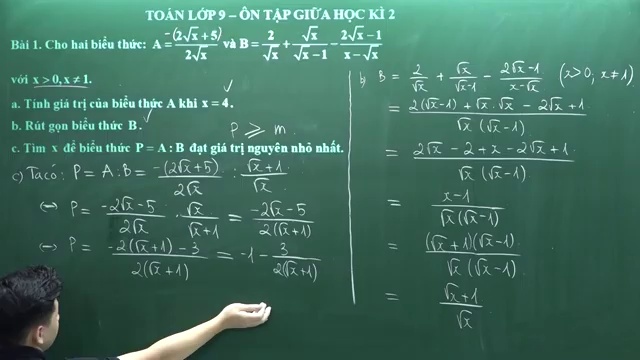 TOÁN LỚP 9 – ÔN TẬP GIỮA HỌC KÌ 2
Bài 1. Cho hai biểu thức: A = -(2√x + 5) / 2√x và B = 2/√x + √x/(√x - 1) - (2√x - 1)/(x - √x)
với x > 0, x ≠ 1.
a. Tính giá trị của biểu thức A khi x = 4. ✓
b. Rút gọn biểu thức B. ✓
P ⩾ m
c. Tìm x để biểu thức P = A : B đạt giá trị nguyên nhỏ nhất.
c) Ta có: P = A : B = -(2√x + 5)/2√x : (√x + 1)/√x
⇔ P = (-2√x - 5)/2√x . √x/(√x + 1) = (-2√x - 5)/2(√x + 1)
⇔ P = (-2(√x + 1) - 3)/2(√x + 1) = -1 - 3/2(√x + 1)
b) B = 2/√x + √x/(√x - 1) - (2√x - 1)/(x - √x) (x > 0; x ≠ 1)
= (2(√x - 1) + √x . √x - 2√x + 1)/√x(√x - 1)
= (2√x - 2 + x - 2√x + 1)/√x(√x - 1)
= (x - 1)/√x(√x - 1)
= (√x + 1)(√x - 1)/√x(√x - 1)
= (√x + 1)/√x